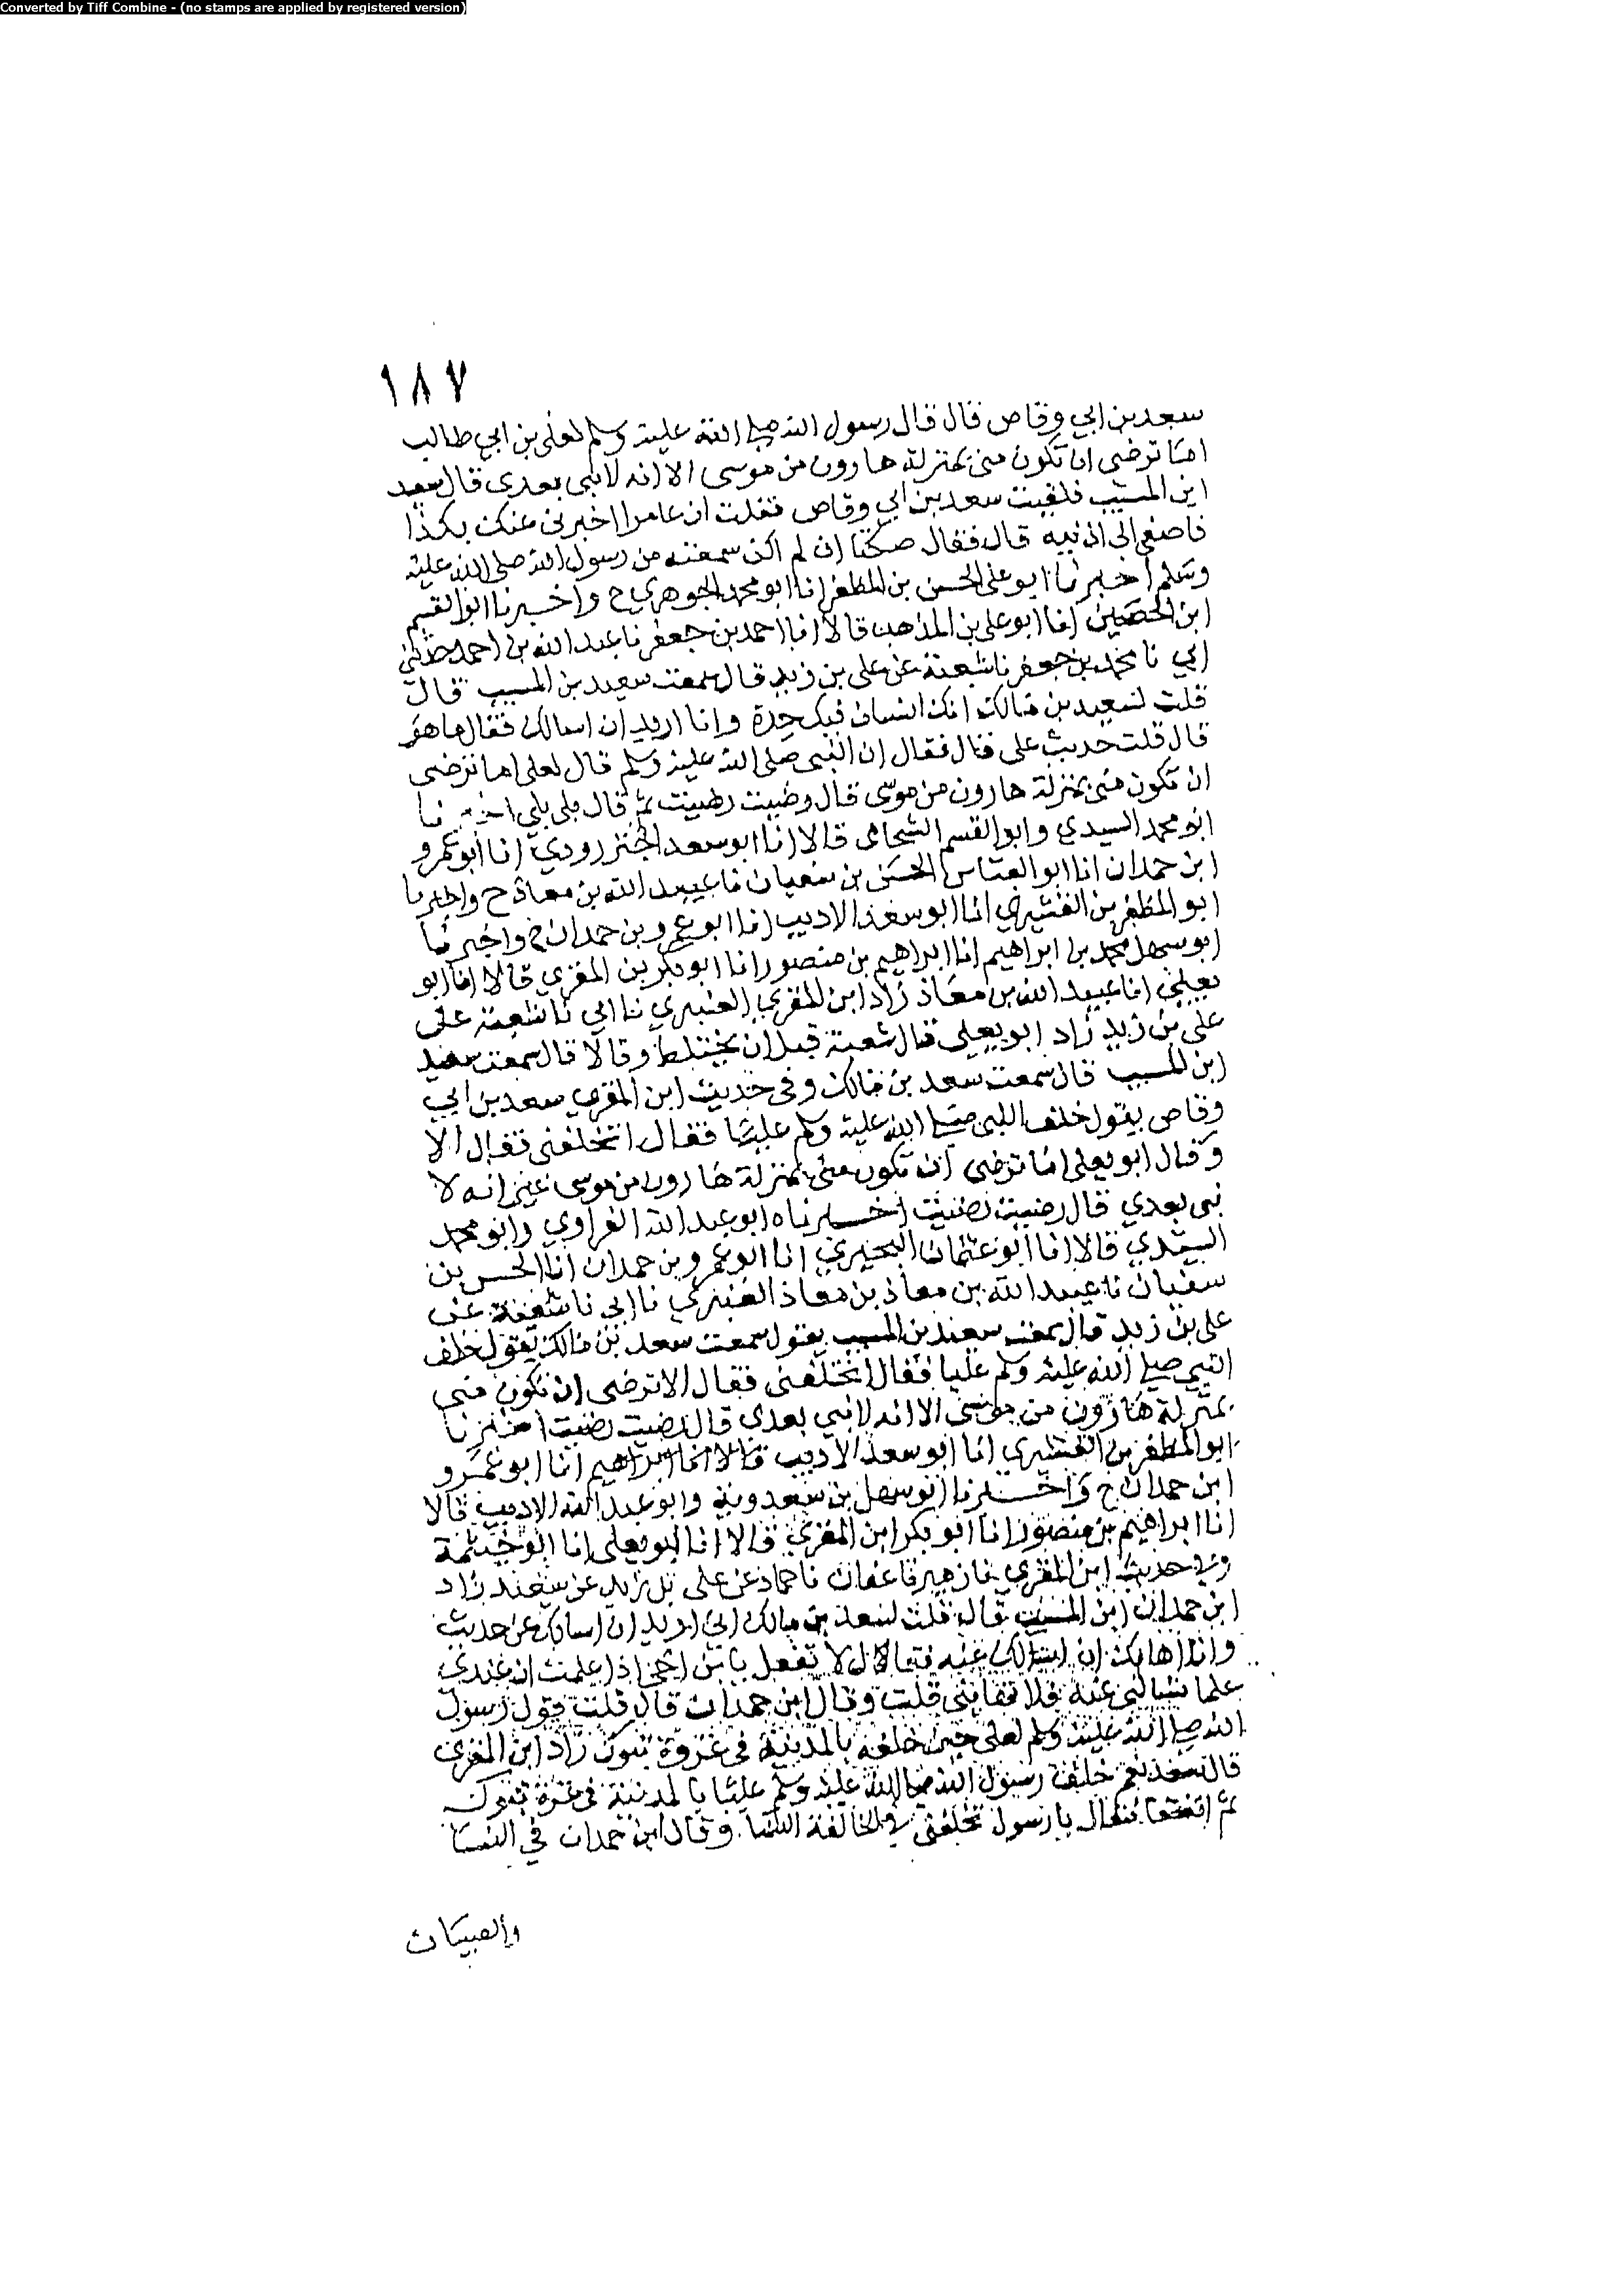 Converted by Tiff Combine - (no stamps are applied by registered version)
١٨٧
سعد بن ابي وقاص قال قال رسول الله صلى الله عليه وسلم لعلى بن ابي طالب
اما ترضى ان تكون منى بمنزلة هارون من موسى الا انه لا نبى بعدى قال سعيد
ابن المسيب فلقيت سعد بن ابي وقاص فقلت ان عامرا اخبرنى عنك بكذا
فاصغى الى اذنيه قال فقال صكتا ان لم اكن سمعته من رسول الله صلى الله عليه
وسلم اخبرنا ابو على الحسن بن المظفر انا ابو محمد الجوهري ح واخبرنا ابو القسم
ابن الحصين انا ابو على بن المذهب قالا انا احمد بن جعفر نا عبد الله بن احمد حدثنى
ابي نا محمد بن جعفر نا شعبة عن على بن زيد قال سمعت سعيد بن المسيب قال
قلت لسعد بن مالك انك انسان فيك حدة وانا اريد ان اسالك فقال ما هو
قال قلت حديث على قال فقال ان النبى صلى الله عليه وسلم قال لعلى اما ترضى
ان تكون منى بمنزلة هارون من موسى قال رضيت رضيت ثم قال بلى بلى اخبرنا
ابو محمد السيدي وابو القسم الشحامى قالا انا ابو سعد الجنزرودي انا ابو عمرو
ابن حمدان انا ابو العباس الحسن بن سفيان نا عبيد الله بن معاذ ح واخبرنا
ابو المظفر بن القشيري انا ابو سعد الاديب انا ابو عمرو بن حمدان ح واخبرنا
ابو سهل محمد بن ابراهيم انا ابراهيم بن منصور انا ابو بكر بن المقري قالا انا ابو
يعلى انا عبيد الله بن معاذ زاد ابن المقري العنبري نا ابي نا شعبة عن
على بن زيد زاد ابو يعلى قال شعبة قبل ان يختلط وقالا قال سمعت سعيد
ابن المسيب قال سمعت سعد بن مالك وفى حديث ابن المقري سعد بن ابي
وقاص يقول خلف النبى صلى الله عليه وسلم عليا فقال اتخلفنى فقال الا
وقال ابو يعلى اما ترضى ان تكون منى بمنزلة هارون من موسى غير انه لا
نبى بعدي قال رضيت رضيت اخبرناه ابو عبد الله الفراوي وابو محمد
السيدي قالا انا ابو عثمان البحيري انا ابو عمرو بن حمدان انا الحسن بن
سفيان نا عبيد الله بن معاذ بن معاذ العنبري نا ابى نا شعبة عن
على بن زيد قال سمعت سعيد بن المسيب يقول سمعت سعد بن مالك يقول خلف
النبي صلى الله عليه وسلم عليا فقال اتخلفنى فقال الا ترضى ان تكون منى
بمنزلة هارون من موسى الا انه لا نبي بعدى قال رضيت رضيت اخبرنا
ابو المظفر بن القشيري انا ابو سعد الاديب قالا انا ابراهيم انا ابو عمرو
ابن حمدان ح واخبرنا ابو سهل بن سعدوية وابو عبد الله الاديب قالا
انا ابراهيم بن منصور انا ابو بكر ابن المقري قالا انا ابو يعلى انا ابو خيثمة
وفي حديث ابن المقري نا زهير نا عفان نا حماد عن على بن زيد عن سعيد زاد
ابن حمدان ابن المسيب قال قلت لسعد بن مالك انى اريد ان اسالك عن حديث
وانا اهابك ان اسالك عنه فقال لا تفعل يا بن اخى اذا علمت ان عندي
علما تسالنى عنه فلا تهابنى قلت وقال ابن حمدان قال قلت قول رسول
الله صلى الله عليه وسلم لعلى حين خلفه بالمدينة فى غزوة تبوك زاد ابن المقرى
قال سعد نعم خلف رسول الله صلى الله عليه وسلم عليا بالمدينة فى غزوة تبوك
ثم اتفقا فقال يا رسول تخلفنى في الخالفة النسا وقال ابن حمدان في النسا
والصبيان